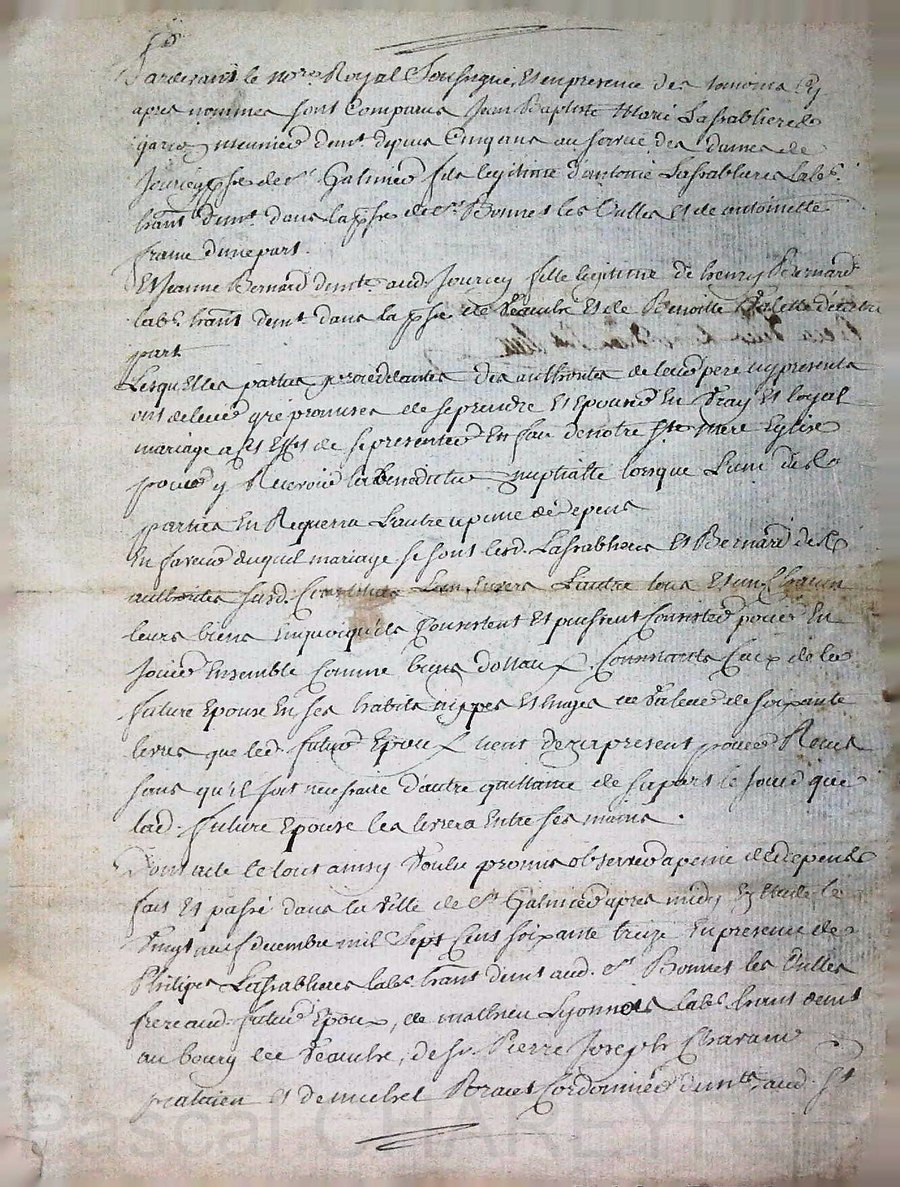 Pardevant le no.re Royal Soussigné, Et en presence des temoins cy
apres nommés sont Comparus Jean Baptiste Mori Lassablière
garçon meunier dem.t depuis Cinq ans au service des dames de
Jourcey psse de S.t Galmier fils legitime d'antoine Lassablière lab.r
hant dem.t dans la psse de S.t Bonnet les Oulles Et de antoinette
d'une part.
Et Jeanne Bernard dem.te aud. Jourcey fille legitime de henry Bernard
lab.r hant dem.t dans la psse de Veauche Et de Benoitte Valette d'autre
part
Lesquelles parties procedantes des authorites de leur pere icy presents
ont de leur gré promises de se prendre Et Epouser En Vray Et loyal
mariage a Et Effet de se presenter En face de notre S.te mere Eglise
pour y Recevoir la benediction nuptialle lorsque L'une des
parties En Requerra L'autre a peine de depens
En faveur duquel mariage se sont lesd. Lassablière Et Bernard des
authorités susd. Constitués L'un Envers L'autre tous Et un Chacun
leurs biens En quoy qu'ils Consistent Et puissent Consister pour En
Jouir Ensemble Comme biens dottaux, Consistants Ceux de la
future Epouse En ses habits nippes Et linges de Valeur de soixante
livres que led. futur Epoux tient dez a present pour Reçus
sans qu'il soit necessaire d'autre quittance de sa part le jour que
lad. future Epouse les livrera Entre ses mains.
Dont acte le tout ainsy Voulu promis observer a peine de depens
fait Et passé dans la ville de S.t Galmier apres midy En Etude le
Vingt neuf decembre mil Sept Cent soixante treize En presence de
Philipe Lassablière lab.r hant dem.t aud. S.t Bonnet les Oulles
frere aud. futur Epoux, de mathieu Lyonnois lab.r hant dem.t
au bourg de Veauche, de s.r Pierre Joseph
praticien Et de michel Cordonnier dem.ts aud. S.t
Pascal CHAREY